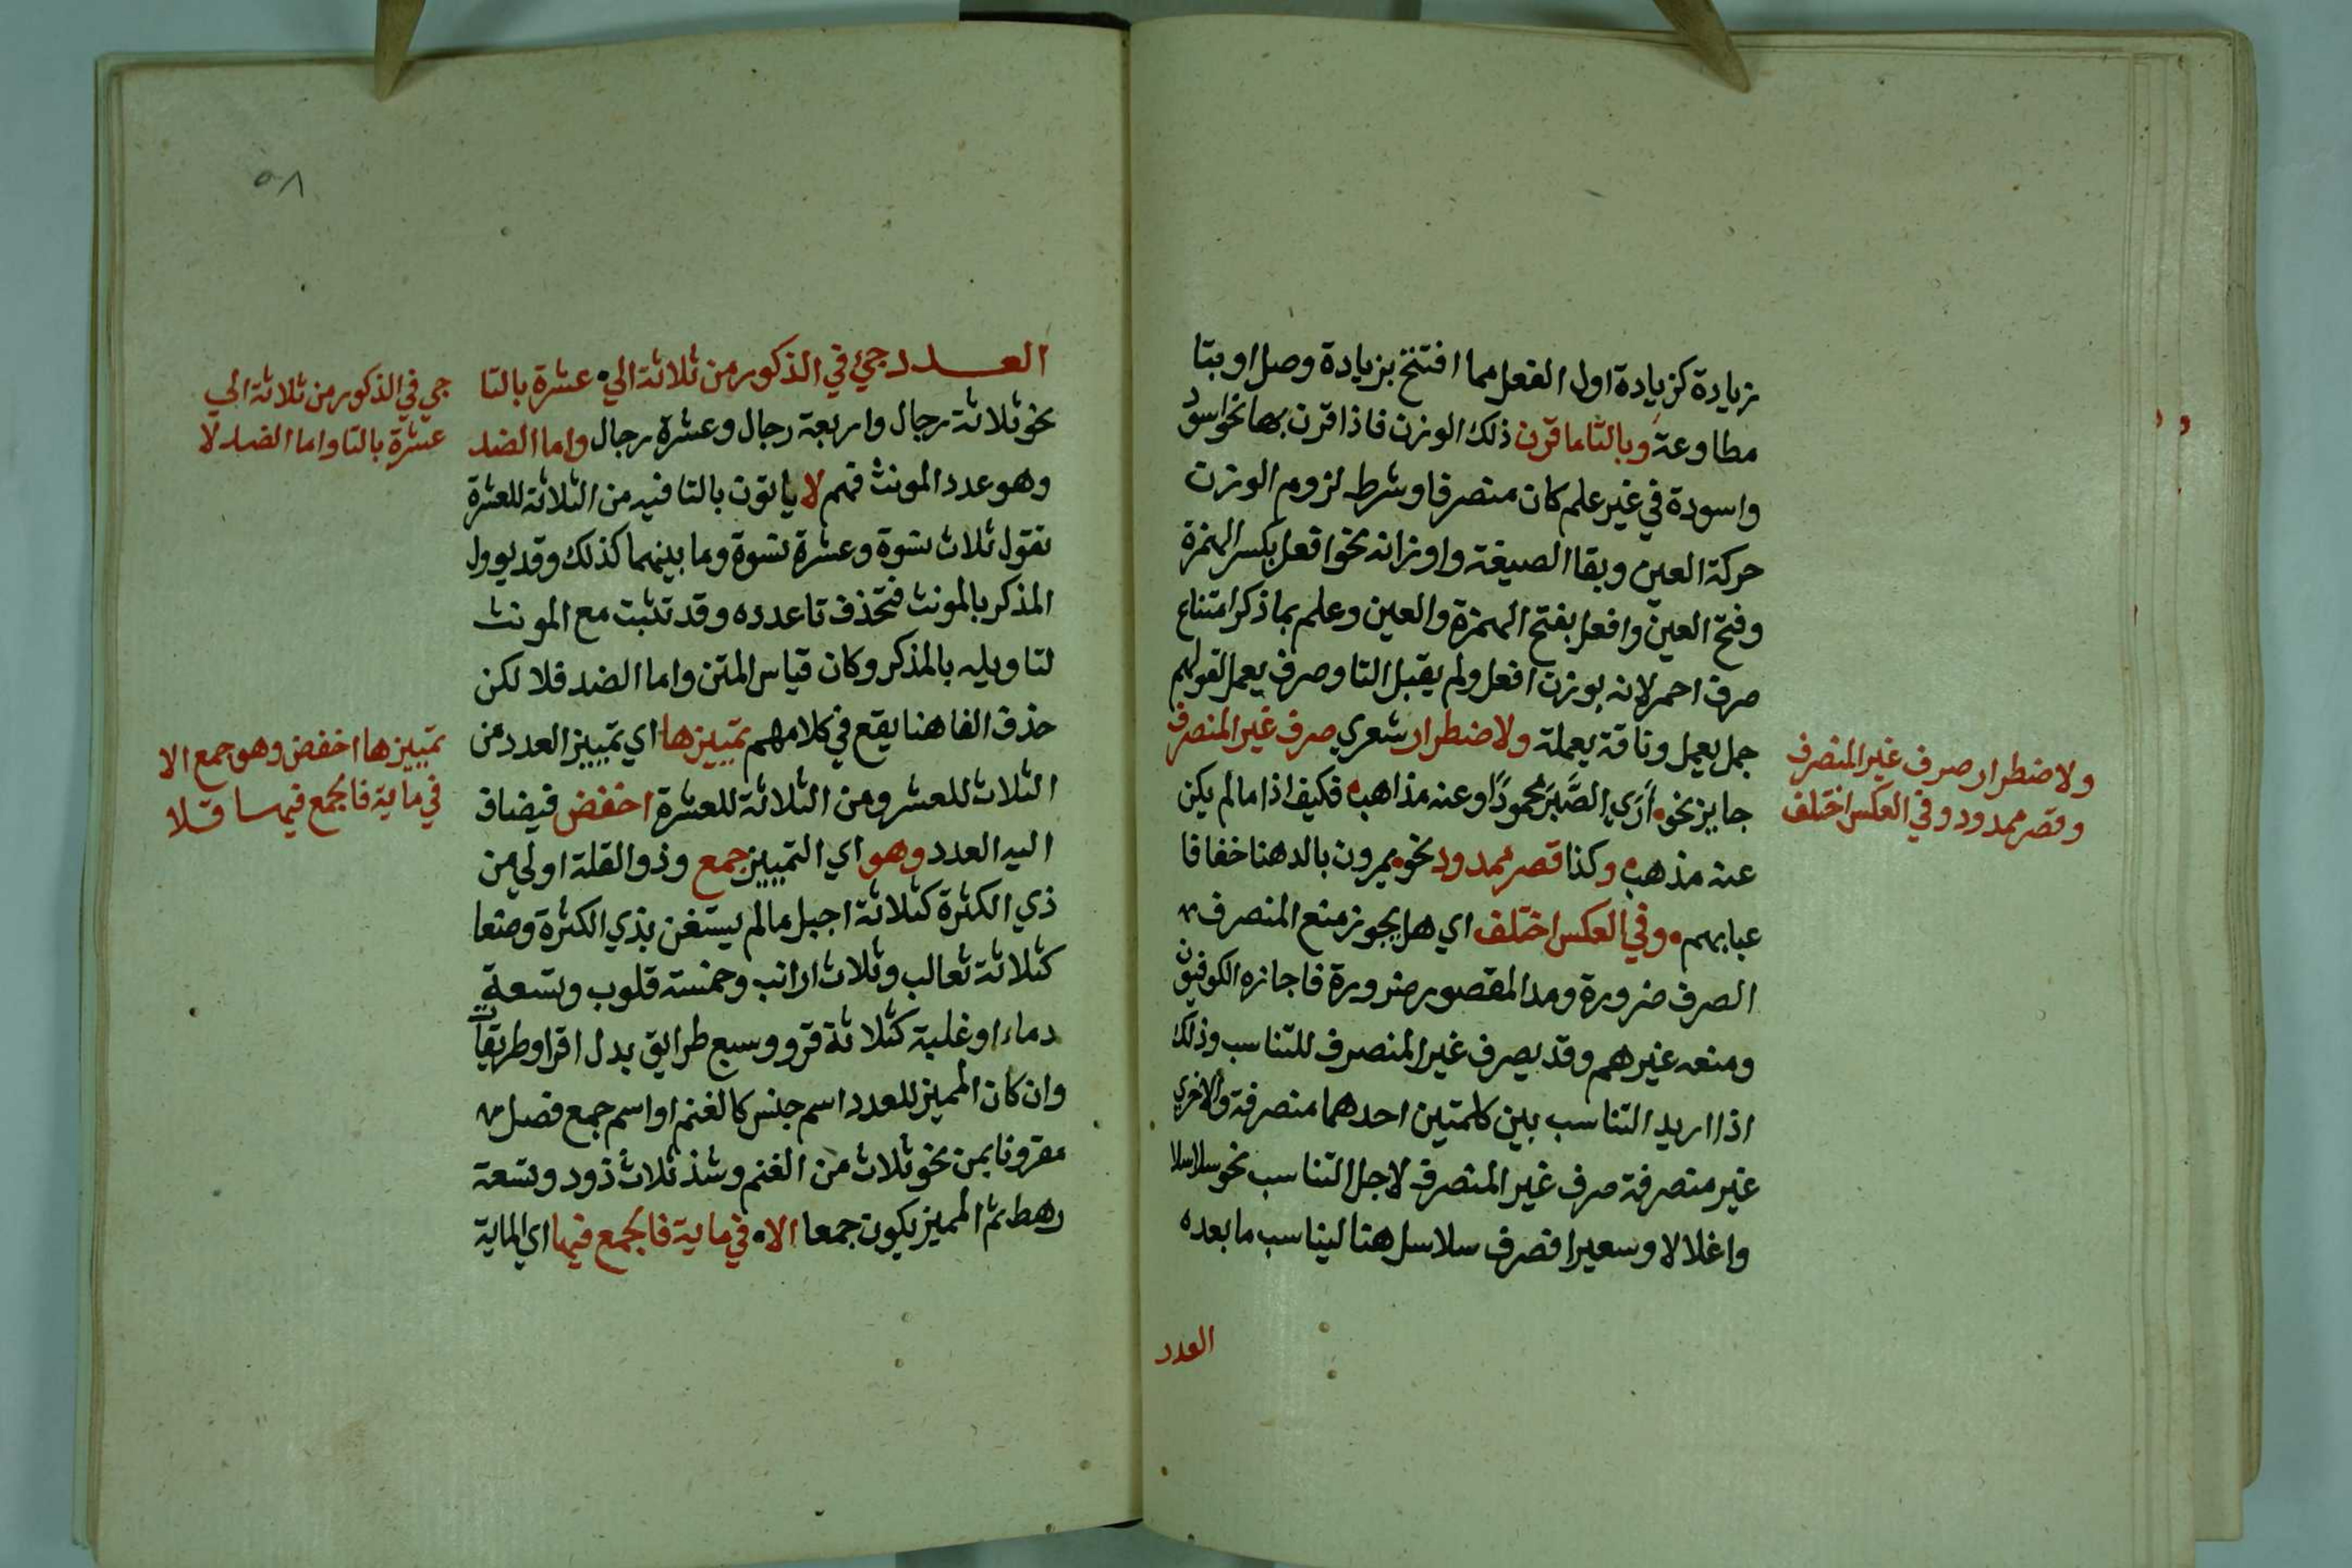 زيادة كزيادة اول الفعل مما افتتح بزيادة وصل او بتا
مطاوعة وبالتا ما قرن ذلك الوزن فاذا قرن بها نحو اسود
واسودة في غير علم كان منصرفا وشرط لزوم الوزن
حركة العين وبقا الصيغة واوزانه نحو افعل بكسر الهمزة
وفتح العين وافعل بفتح الهمزة والعين وعلم بما ذكر امتناع
صرف احمر لانه بوزن افعل ولم يقبل التا وصرف يعمل لقولهم
جمل يعمل وناقة يعملة ولاضطرار شعري صرف غير المنصرف
جايز نحو اَرَي الصَّبرَ محمودًا وعنه مذاهب فكيف اذا ما لم يكن
عنه مذهب وكذا قصر ممدود نحو يمرون بالدهنا خفافا
عيابهم وفي العكس اختلف اي هل يجوز منع المنصرف من
الصرف ضرورة ومد المقصور ضرورة فاجازه الكوفيون
ومنعه غيرهم وقد يصرف غير المنصرف للتناسب وذلك
اذا اريد التناسب بين كلمتين احدهما منصرفة والاخري
غير منصرفة صرف غير المنصرف لاجل التناسب نحو سلاسلا
واغلالا وسعيرا فصرف سلاسل هنا ليناسب ما بعده
العدد
ولاضطرار صرف غير المنصرف
وقصر ممدود وفي العكس اختلف
٥٨
العدد جئ في الذكور من ثلاثة الي عشرة بالتا
نحو ثلاثة رجال واربعة رجال وعشرة رجال واما الضد
وهو عدد المونث فهم لا ياتون بالتا فيه من الثلاثة للعشرة
تقول ثلاث نسوة وعشرة نسوة وما بينهما كذلك وقد يوول
المذكر بالمونث فتحذف تا عدده وقد تثبت مع المونث
لتاويله بالمذكر وكان قياس المتن واما الضد فلا لكن
حذف الفا هنا يقع في كلامهم تمييزها اي تمييز العدد من
الثلاث للعشر ومن الثلاثة للعشرة اخفض فيضاف
اليه العدد وهو اي التمييز جمع وذو القلة اولي من
ذي الكثرة كثلاثة اجبل ما لم يستغن بذي الكثرة وضعا
كثلاثة ثعالب وثلاث ارانب وخمسة قلوب وتسعة
دماء او غلبة كثلاثة قرو وسبع طرايق بدل اقرا وطريقات
وان كان المميز للعدد اسم جنس كالغنم او اسم جمع فصل من
مقرونا بمن نحو ثلاث من الغنم وشذ ثلاث ذود وتسعة
رهط ثم المميز يكون جمعا الا في ماية فالجمع فيها اي الماية
جي في الذكور من ثلاثة الي
عشرة بالتا واما الضد لا
تمييزها اخفض وهو جمع الا
في ماية فالجمع فيها قلا